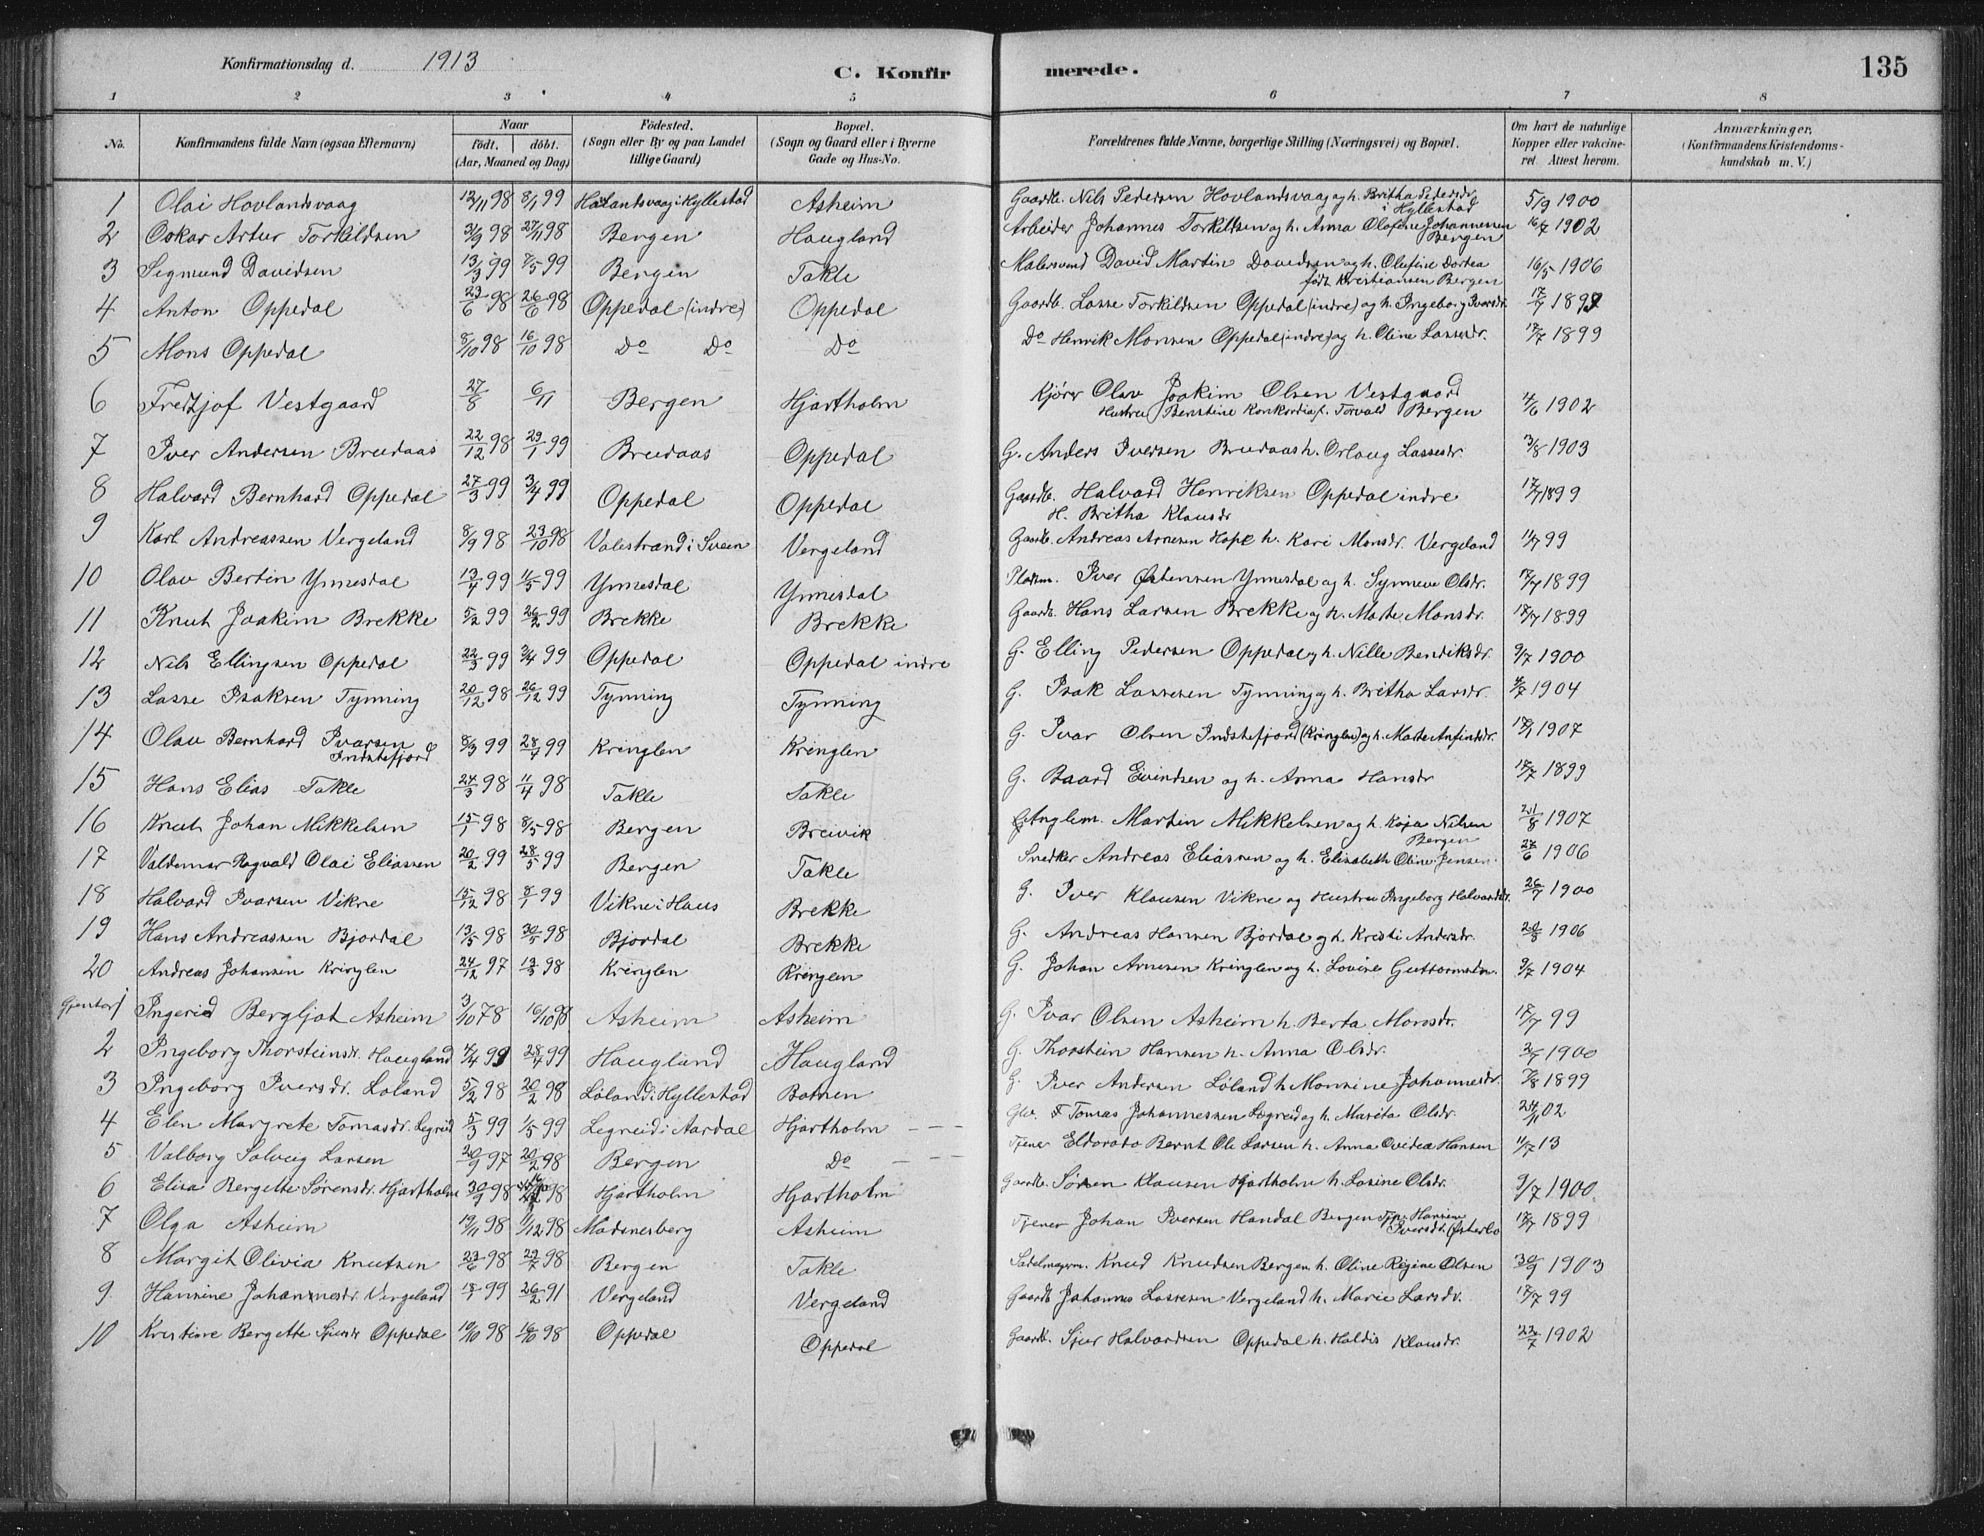 Konfirmationsdag d. 1913
C. Konfirmerede.
135
1 2 3 4 5 6 7 8
No.
Konfirmandens fulde Navn (ogsaa Efternavn)
Naar født. døbt. (Aar, Maaned og Dag)
Fødested. (Sogn eller By og paa Landet tillige Gaard)
Bopæl. (Sogn og Gaard eller i Byerne Gade og Hus-No.
Forældrenes fulde Navne, borgerlige Stilling (Næringsvei) og Bopæl.
Om havt de naturlige Kopper eller vaksineret. Attest herom.
Anmærkninger. (Konfirmandens Kristendomskundskab m. V.)
1 Olai Hovlandsvaag 12/11 98 8/1 99 Hovlantsvaag i Hyllestad Asheim Gaardb. Nils Pedersen Hovlandsvaag og h. Britha Pedersdr. i Hyllestad 5/9 1900
2 Oskar Artur Torkildsen 3/9 98 27/11 98 Bergen Haugland Arbeider Johannes Torkildsen og h. Anna Olofine Johannessen Bergen 16/7 1902
3 Segmund Davidsen 13/3 99 7/5 99 Bergen Takle Malersvend David Martin Davidsen og h. Olefine Dortea født Kristiansen Bergen 16/5 1906
4 Anton Oppedal 23/6 98 26/6 98 Oppedal (indre) Oppedal Gaardb. Lasse Torkildsen Oppedal (indre) og h. Ingeborg Iversdr. 17/7 1899
5 Mons Oppedal 8/10 98 16/10 98 Do Do Do Do Henrik Monsen Oppedal (indre) og h. Oline Lassesdr. 17/7 1899
6 Fredtjof Vestgaard 27/8 6/11 Bergen Hjartholm Kjører Olav Joakim Olsen Vestgaard Hustru Benstine Konkordia f. Torvald Bergen 4/6 1902
7 Iver Andersen Bredaas 22/12 98 29/1 99 Bredaas Oppedal G. Anders Iversen Bredaas h. Orlaug Lassesdr. 3/8 1903
8 Halvard Bernhard Oppedal 27/3 99 3/4 99 Oppedal Oppedal Gaardb. Halvard Henriksen Oppedal indre H. Britha Klausdr 17/7 1899
9 Karl Andreassen Vergeland 8/9 98 23/10 98 Valestrand i Sveen Vergeland Gaardb. Andreas Arnesen Hope h. Kari Monsdr. Vergeland 11/7 99
10 Olav Bertin Ynnesdal 13/4 99 11/5 99 Ynnesdal Ynnesdal Pladsm. Iver Østensen Ynnesdal og h. Synneve Olsdr. 17/7 1899
11 Knut Joakim Brekke 5/2 99 26/2 99 Brekke Brekke Gaardb. Hans Larsen Brekke og h. Marte Monsdr. 17/7 1899
12 Nils Ellingsen Oppedal 22/3 99 3/4 99 Oppedal Oppedal indre G. Elling Pedersen Oppedal og h. Nille Bendiksdr. 9/7 1900
13 Lasse Isaksen Tynning 20/12 98 26/12 99 Tynning Tynning G. Isak Lassesen Tynning og h. Britha Larsdr. 4/7 1904
14 Olav Bernhard Ivarsen Indstefjord 8/3 99 28/4 99 Kringlen Kringlen G. Ivar Olsen Indstefjord (Kringlen) og h. Marte Anfindsdr. 1907
15 Hans Elias Takle 24/3 98 11/4 98 Takle Takle G. Baard Eivindsen og h. Anna Hansdr 17/7 1899
16 Knut Johan Mikkelsen 15/1 98 8/5 98 Bergen Breivik Martin Mikkelsen og h. Kaja Nilsen Bergen 21/8 1907
17 Valdemar Ragvald Olai Eliassen 20/2 99 28/5 99 Bergen Takle Snedker Andreas Eliassen og h. Elisabeth Oline Jensen. 27/6 1906
18 Halvard Ivarsen Vikne 15/12 98 8/1 99 Vikne i Haus Brekke G. Iver Klausen Vikne og Hustru Ingeborg Halvardsdr. 26/7 1900
19 Hans Andreassen Bjordal 13/5 98 30/5 98 Bjordal Brekke G. Andreas Hansen Bjordal og h. Kristi Andersdr. 20/8 1906
20 Andreas Johansen Kringlen 24/12 97 13/3 98 Kringlen Kringlen G. Johan Arnesen Kringlen og h. Lovise Guttormsdr. 9/7 1904
Gjenter 1 Ingerid Bergljot Asheim 3/10 78 16/10 98 Asheim Asheim G. Ivar Olsen Asheim h. Berta Monsdr. 17/7 99
2 Ingeborg Thorsteinsdr. Haugland 4/4 99 28/4 99 Haugland Haugland G. Thorstein Hansen h. Anna Olsdr. 1900
3 Ingeborg Iversdr. Løland 5/2 98 20/2 98 Løland i Hyllestad Botnen G. Iver Andersen Løland h. Monsine Johannesdr. 7/8 1899
4 Elen Margrete Tomasdr. Legreid 5/3 99 1/5 99 Legreid i Aardal Hjartholm Gbr. F Tomas Johannessen Lægreid og h. Marita Olsdr. 24/11 02
5 Valborg Solveig Larsen 20/9 97 20/2 98 Bergen Do Tjener Eldorado Bernt Ole Larsen h. Anna Ovidea Hansen 11/7 13
6 Elisa Bergette Sørensdr. Hjartholm 30/9 98 98 Hjartholm Hjartholm Gaardb. Søren Klausen Hjartholm h. Losine Olsdr. 9/7 1900.
7 Olga Asheim 19/11 98 1/12 98 Madsnesberg Asheim Tjener Johan Iversen Handal Bergen Tjp. Hansine Iversdtr. Østerbo 17/7 1899
8 Margit Olivia Knutsen 23/6 98 27/7 98 Bergen Takle Sadelmagerm. Knud Knudsen Bergen h. Oline Regine Olsen 30/9 1903
9 Hansine Johannesdr. Vergeland 18/1 99 26/2 91 Vergeland Vergeland Gaardb Johannes Lassesen Vergeland h. Marie Larsdr. 17/7 99
10 Kristine Bergette Sjursdr Oppedal 10/10 98 16/10 98 Oppedal Oppedal Gaardb. Sjur Halvardsen Oppedal h. Haldis Klausdr. 23/7 1902